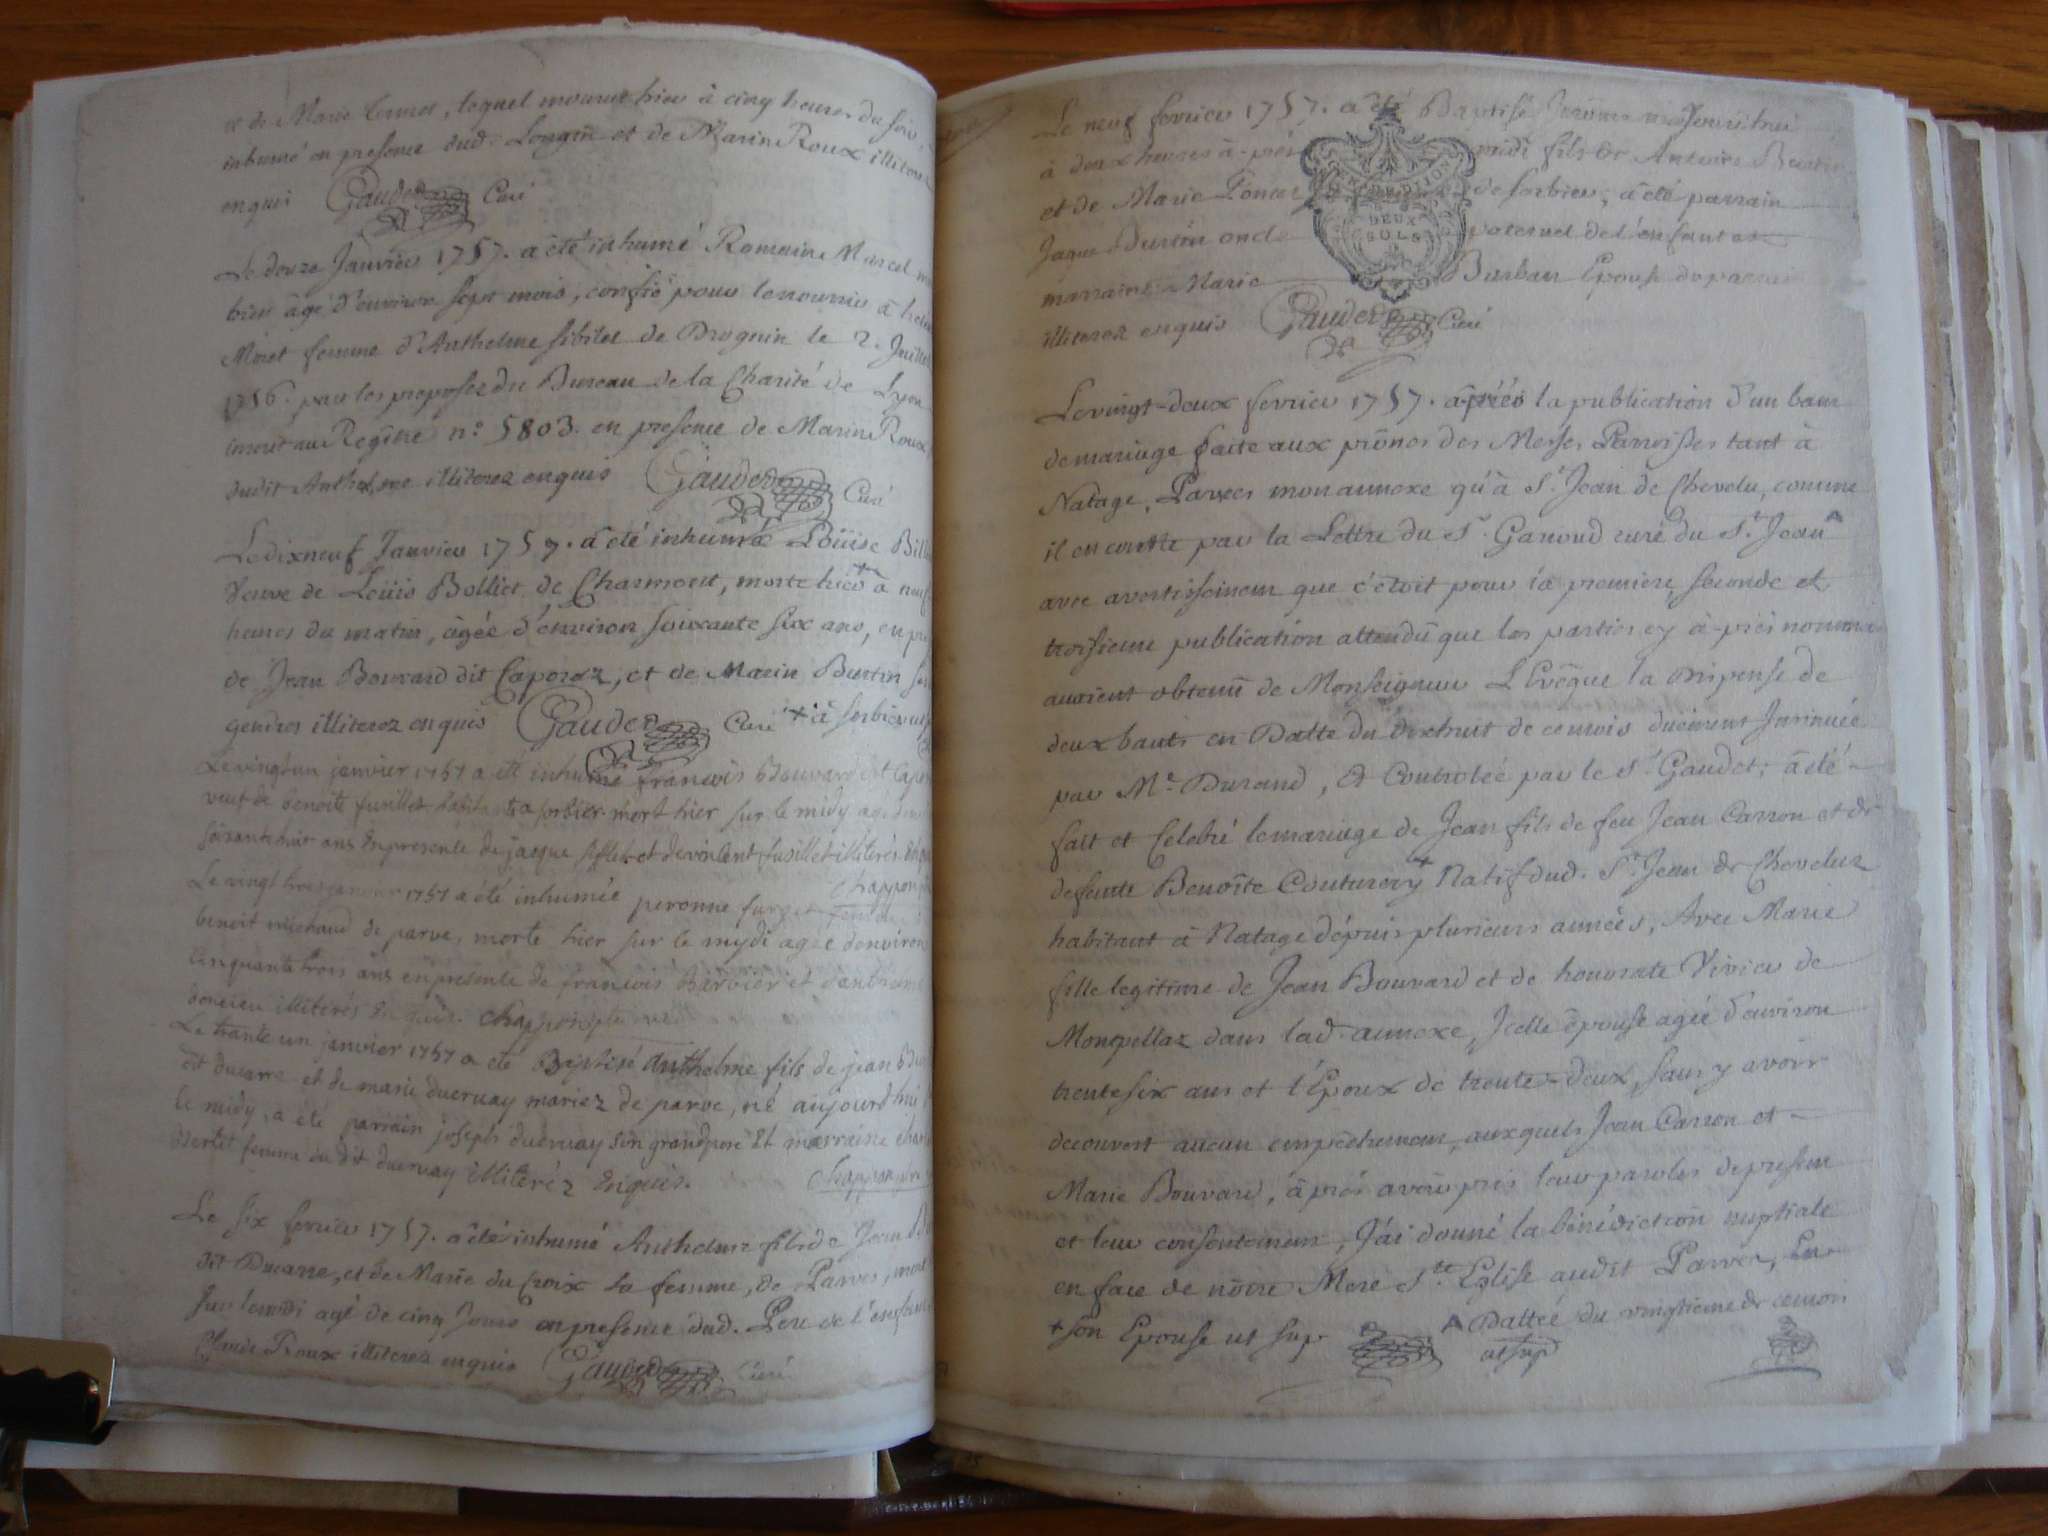 et de Marie lequel mourut hier à cinq heures du soir,
inhumé en presence dud. Longin et de Marin Roux illiterez
enquis Gauder Curé
Le douze Janvier 1757. a été inhumé Romain Marcel
âgé d'environ sept mois, confié pour le nourrir à
Moret femme d'Anthelme Sibilet de Brognin le 2. Juillet
1756. par les proposez du Bureau de la Charité de Lyon
inscrit au Regître n.º 5803. en presence de Marin Roux
dudit Anthelme illiterez enquis Gauder Curé
Le dixneuf Janvier 1757. a été inhumée Loüise
Veuve de Loüis Bolliet de Charmont, morte hier + à neuf
heures du matin, âgée d'environ soixante six ans, en
de Jean Bouvard dit Caporaz, et de Marin Burtin
gendres illiterez enquis Gauder Curé + à Sorbier
Le vingt un janvier 1757 a été inhumé francois Bouvard dit
veuf de benoite fusillet habitant a sorbier mort hier sur le midy agé
soixante huit ans En presence de jaque et de vincent fusillet illiterés
Chappon
Le vingt trois janvier 1757 a été inhumée peronne furget femme
benoit michaud de parve, morte hier sur le mydi agée denviron
Cinquante trois ans en presence de francois Barbier et
illiterés Enquis. Chappon
Le trante un janvier 1757 a eté Baptisé Anthelme fils de jean
dit ducarre et de marie ducruay mariez de parve, né aujourdhui
le midy, a été parrain joseph ducruay son grand pere Et marraine
femme du dit ducruay illiteréz Enquis. Chappon
Le six fevrier 1757. a été inhumé Anthelme fils de Jean
dit Ducarre, et de Marie du Croix sa femme, de Parves, mort
sur le midi agé de cinq Jours en presence dud. Pere de l'enfant
Claude Roux illiterez enquis Gauder Curé
Le neuf fevrier 1757. a été Baptisé
à deux heures à-près midi fils de Antoine Burtin
et de Marie de Sorbier, a été parrain
Jaque Burtin oncle paternel de l'enfant et
marraine Marie Burban Epouse du parrain
illiterez enquis Gauder Curé
DIJON
DEUX
SOLS
Le vingt-deux fevrier 1757. après la publication d'un ban
de mariage faite aux prônes des Messes Paroissiales tant à
Natage, Parves mon annexe qu'à S.t Jean de Chevelu, comme
il en conste par la Lettre du S.r Ganoud curé du S.t Jean ^
avec avertissement que c'étoit pour la premiere, seconde et
troisieme publication attendû que les parties cy à-près nommées
auroient obtenu de Monseigneur L'Evêque la Dispense de
deux bants en Datte du dixhuit de ce mois duëment Insinuée
par M.e Durand, Et Controlée par le S.r Gaudet; a été
fait et Celebré le mariage de Jean fils de feu Jean Carron et de
defunte Benoîte Couturery + Natif dud. S.t Jean de Cheveluz
habitant à Natage dépuis plusieurs années, Avec Marie
fille legitime de Jean Bouvard et de honorate Vivier de
Monpellaz dans lad. annexe, Icelle épouse agée d'environ
trente six ans et l'Epoux de trente-deux, sans y avoir
decouvert aucun empêchement, auxquels Jean Carron et
Marie Bouvard, après avoir pris leurs paroles de present
et leur consentement, J'ai donné la bénédiction nuptiale
en face de nôtre Mere S.te Eglise audit Parves, En
+ son Epouse ut sup ^ Dattée du vingtieme de ce mois
ut sup